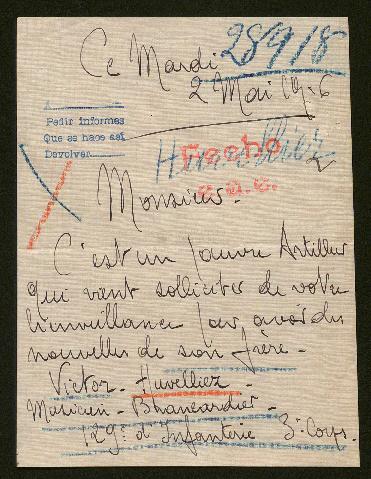 Ce Mardi
28/9/18
2 Mai 1916
Pedir informes
Que se hace así
Devolver
Fecho
Huvelliez
Monsieur -
C'est un pauvre Artilleur
qui vient solliciter de votre
bienveillance pour avoir des
nouvelles de son frère -
Victor - Huvelliez -
Musicien - Brancardier -
129e d'Infanterie 3e Corps.